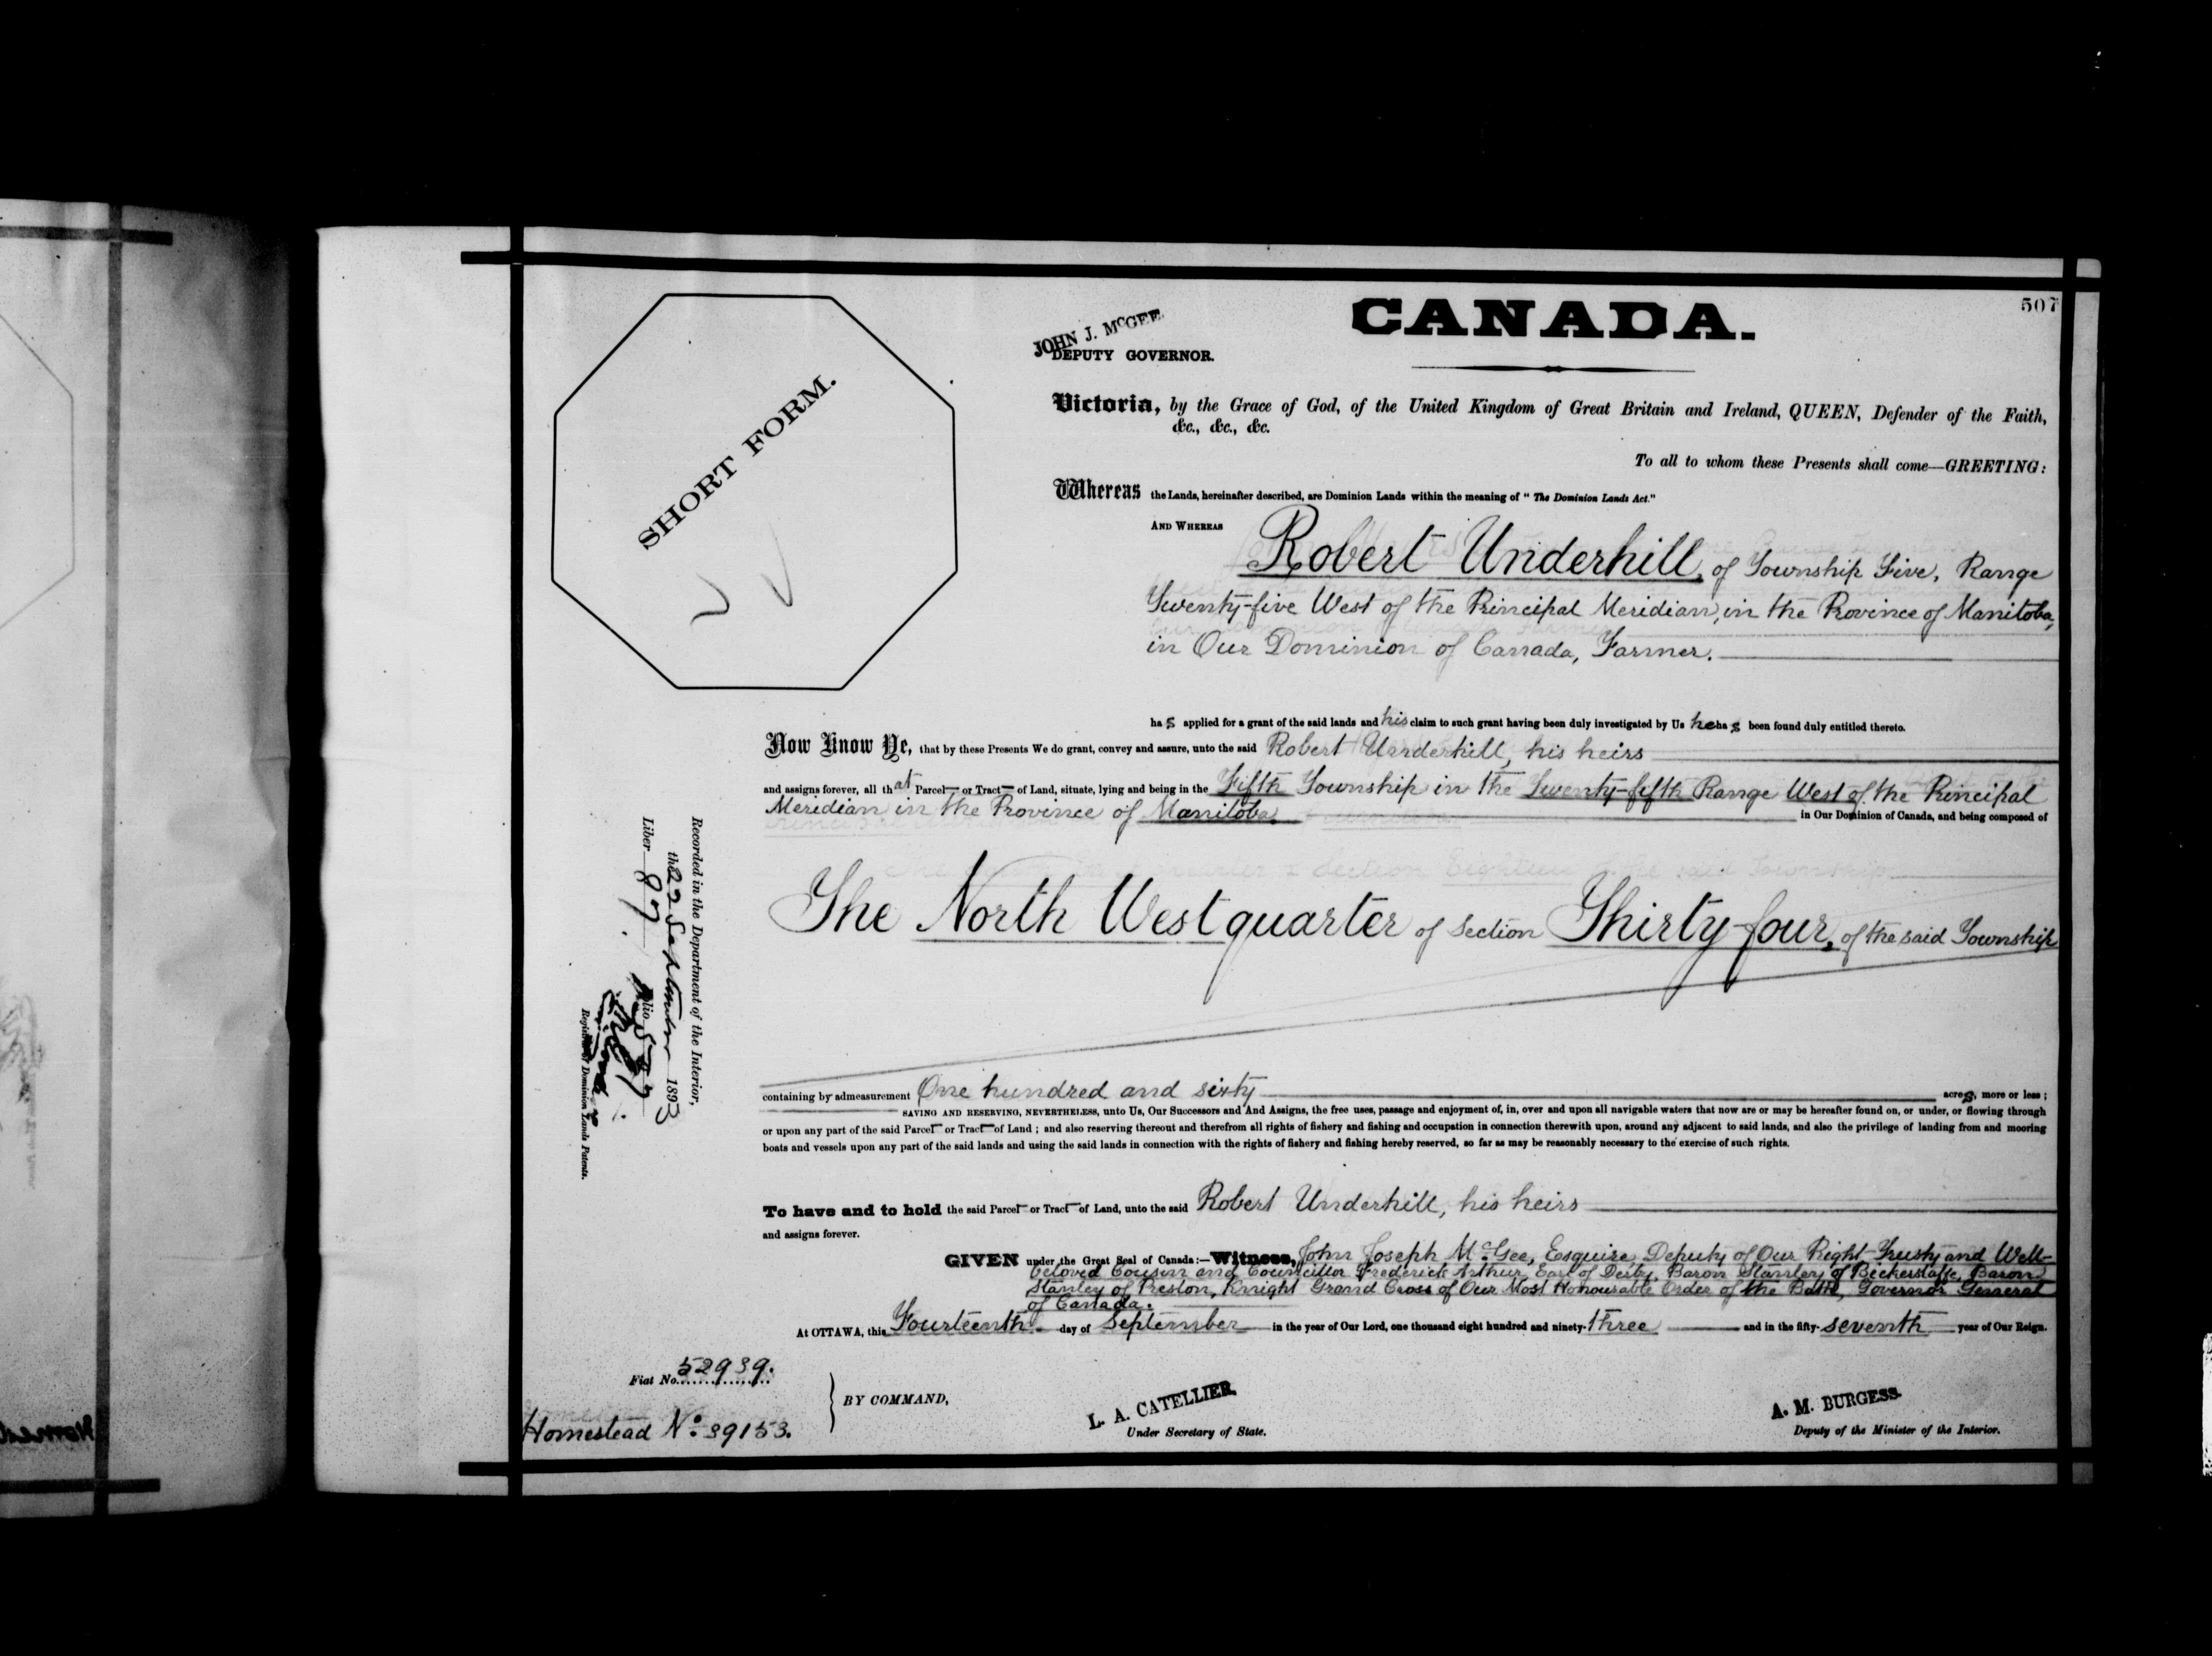 507
CANADA.
JOHN J. McGEE.
DEPUTY GOVERNOR.
SHORT FORM.
Victoria, by the Grace of God, of the United Kingdom of Great Britain and Ireland, QUEEN, Defender of the Faith,
&c., &c., &c.
To all to whom these Presents shall come—GREETING:
Whereas the Lands, hereinafter described, are Dominion Lands within the meaning of "The Dominion Lands Act."
AND WHEREAS Robert Underhill, of Township Five, Range
Twenty-five West of the Principal Meridian, in the Province of Manitoba,
in Our Dominion of Canada, Farmer.
has applied for a grant of the said lands and his claim to such grant having been duly investigated by Us he has been found duly entitled thereto.
Now Know Ye, that by these Presents We do grant, convey and assure, unto the said Robert Underhill, his heirs
and assigns forever, all that Parcel or Tract of Land, situate, lying and being in the Fifth Township in the Twenty-fifth Range West of the Principal
Meridian in the Province of Manitoba
in Our Dominion of Canada, and being composed of
The North West quarter of Section Thirty-four, of the said Township
containing by admeasurement One hundred and sixty acres, more or less;
SAVING AND RESERVING, NEVERTHELESS, unto Us, Our Successors and And Assigns, the free uses, passage and enjoyment of, in, over and upon all navigable waters that now are or may be hereafter found on, or under, or flowing through
or upon any part of the said Parcel or Tract of Land; and also reserving thereout and therefrom all rights of fishery and fishing and occupation in connection therewith upon, around any adjacent to said lands, and also the privilege of landing from and mooring
boats and vessels upon any part of the said lands and using the said lands in connection with the rights of fishery and fishing hereby reserved, so far as may be reasonably necessary to the exercise of such rights.
To have and to hold the said Parcel or Tract of Land, unto the said Robert Underhill, his heirs
and assigns forever.
GIVEN under the Great Seal of Canada:—Witness, John Joseph McGee, Esquire, Deputy of Our Right Trusty and Well-
beloved Cousin and Councillor Frederick Arthur, Earl of Derby, Baron Stanley of Bickerstaffe, Baron
Stanley of Preston, Knight Grand Cross of Our Most Honourable Order of the Bath, Governor General
of Canada.
At OTTAWA, this Fourteenth day of September in the year of Our Lord, one thousand eight hundred and ninety-three and in the fifty-seventh year of Our Reign.
Fiat No. 52939.
Homestead No. 39153.
BY COMMAND,
L. A. CATELLIER.
Under Secretary of State.
A. M. BURGESS.
Deputy of the Minister of the Interior.
Recorded in the Department of the Interior,
the 22 September 1893
Liber 87. Folio 507
Registrar of Dominion Lands Patents.